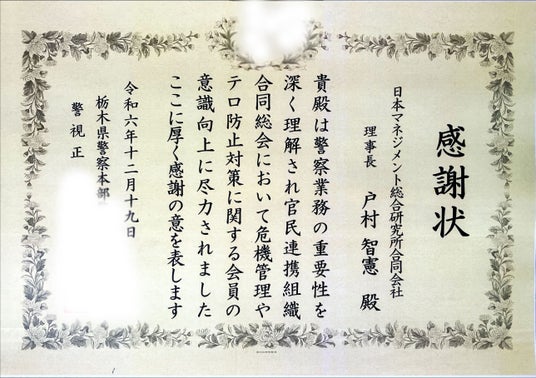 感謝状
日本マネジメント総合研究所合同会社
理事長 戸村 智憲 殿
貴殿は警察業務の重要性を
深く理解され官民連携組織
合同総会において危機管理や
テロ防止対策に関する会員の
意識向上に尽力されました
ここに厚く感謝の意を表します
令和六年十二月十九日
栃木県警察本部
警視正